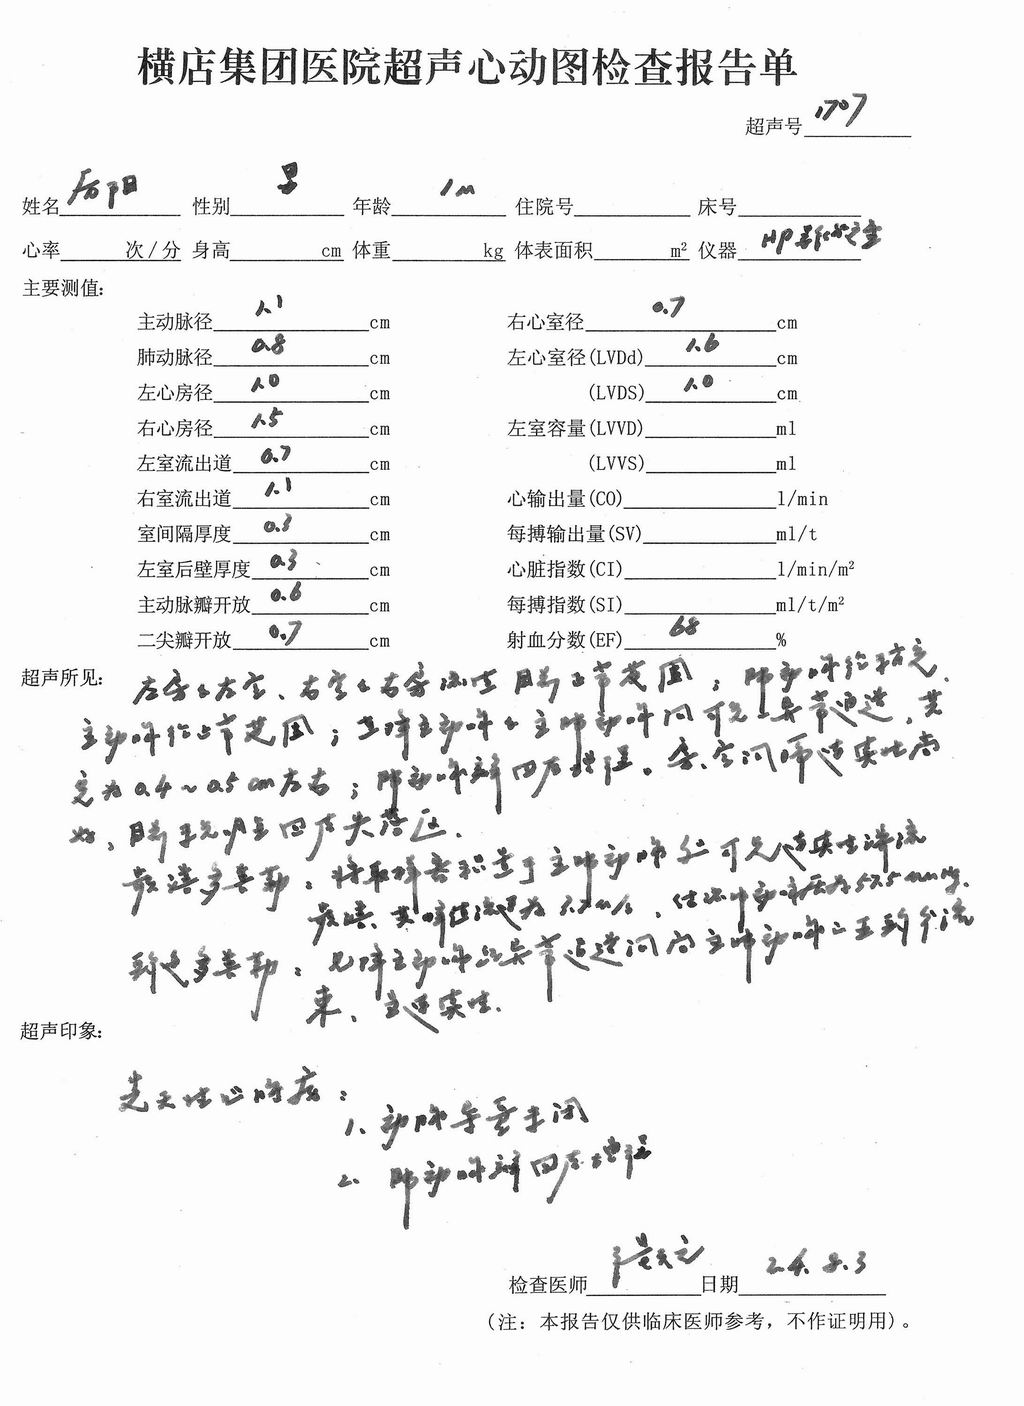 横店集团医院超声心动图检查报告单
超声号 1707
姓名 阳 性别 男 年龄 1m 住院号 床号
心率 次/分 身高 cm 体重 kg 体表面积 m² 仪器 HP
主要测值:
主动脉径 1.1 cm 右心室径 0.7 cm
肺动脉径 0.8 cm 左心室径(LVDd) 1.6 cm
左心房径 1.0 cm (LVDS) 1.0 cm
右心房径 1.5 cm 左室容量(LVVD) ml
左室流出道 0.7 cm (LVVS) ml
右室流出道 1.1 cm 心输出量(CO) l/min
室间隔厚度 0.3 cm 每搏输出量(SV) ml/t
左室后壁厚度 0.3 cm 心脏指数(CI) l/min/m²
主动脉瓣开放 0.6 cm 每搏指数(SI) ml/t/m²
二尖瓣开放 0.7 cm 射血分数(EF) 68 %
超声所见: 左房、左室、右室、右房 正常范围；肺动脉径
主动脉径正常范围；降主动脉与主肺动脉间可见一异常通道，其
宽为0.4～0.5cm左右；肺动脉瓣回声增强。房、室间隔连续性尚
好，
频谱多普勒：将取样容积置于主肺动脉处可见连续性湍流
频谱，其峰值流速为 m/s，估测肺动脉压为57.5mmHg.
彩色多普勒：见降主动脉经异常通道向主肺动脉 五彩分流
束，呈连续性.
超声印象:
先天性心脏病：
1、动脉导管未闭
2、肺动脉瓣回声增强
检查医师 日期
(注: 本报告仅供临床医师参考，不作证明用)。